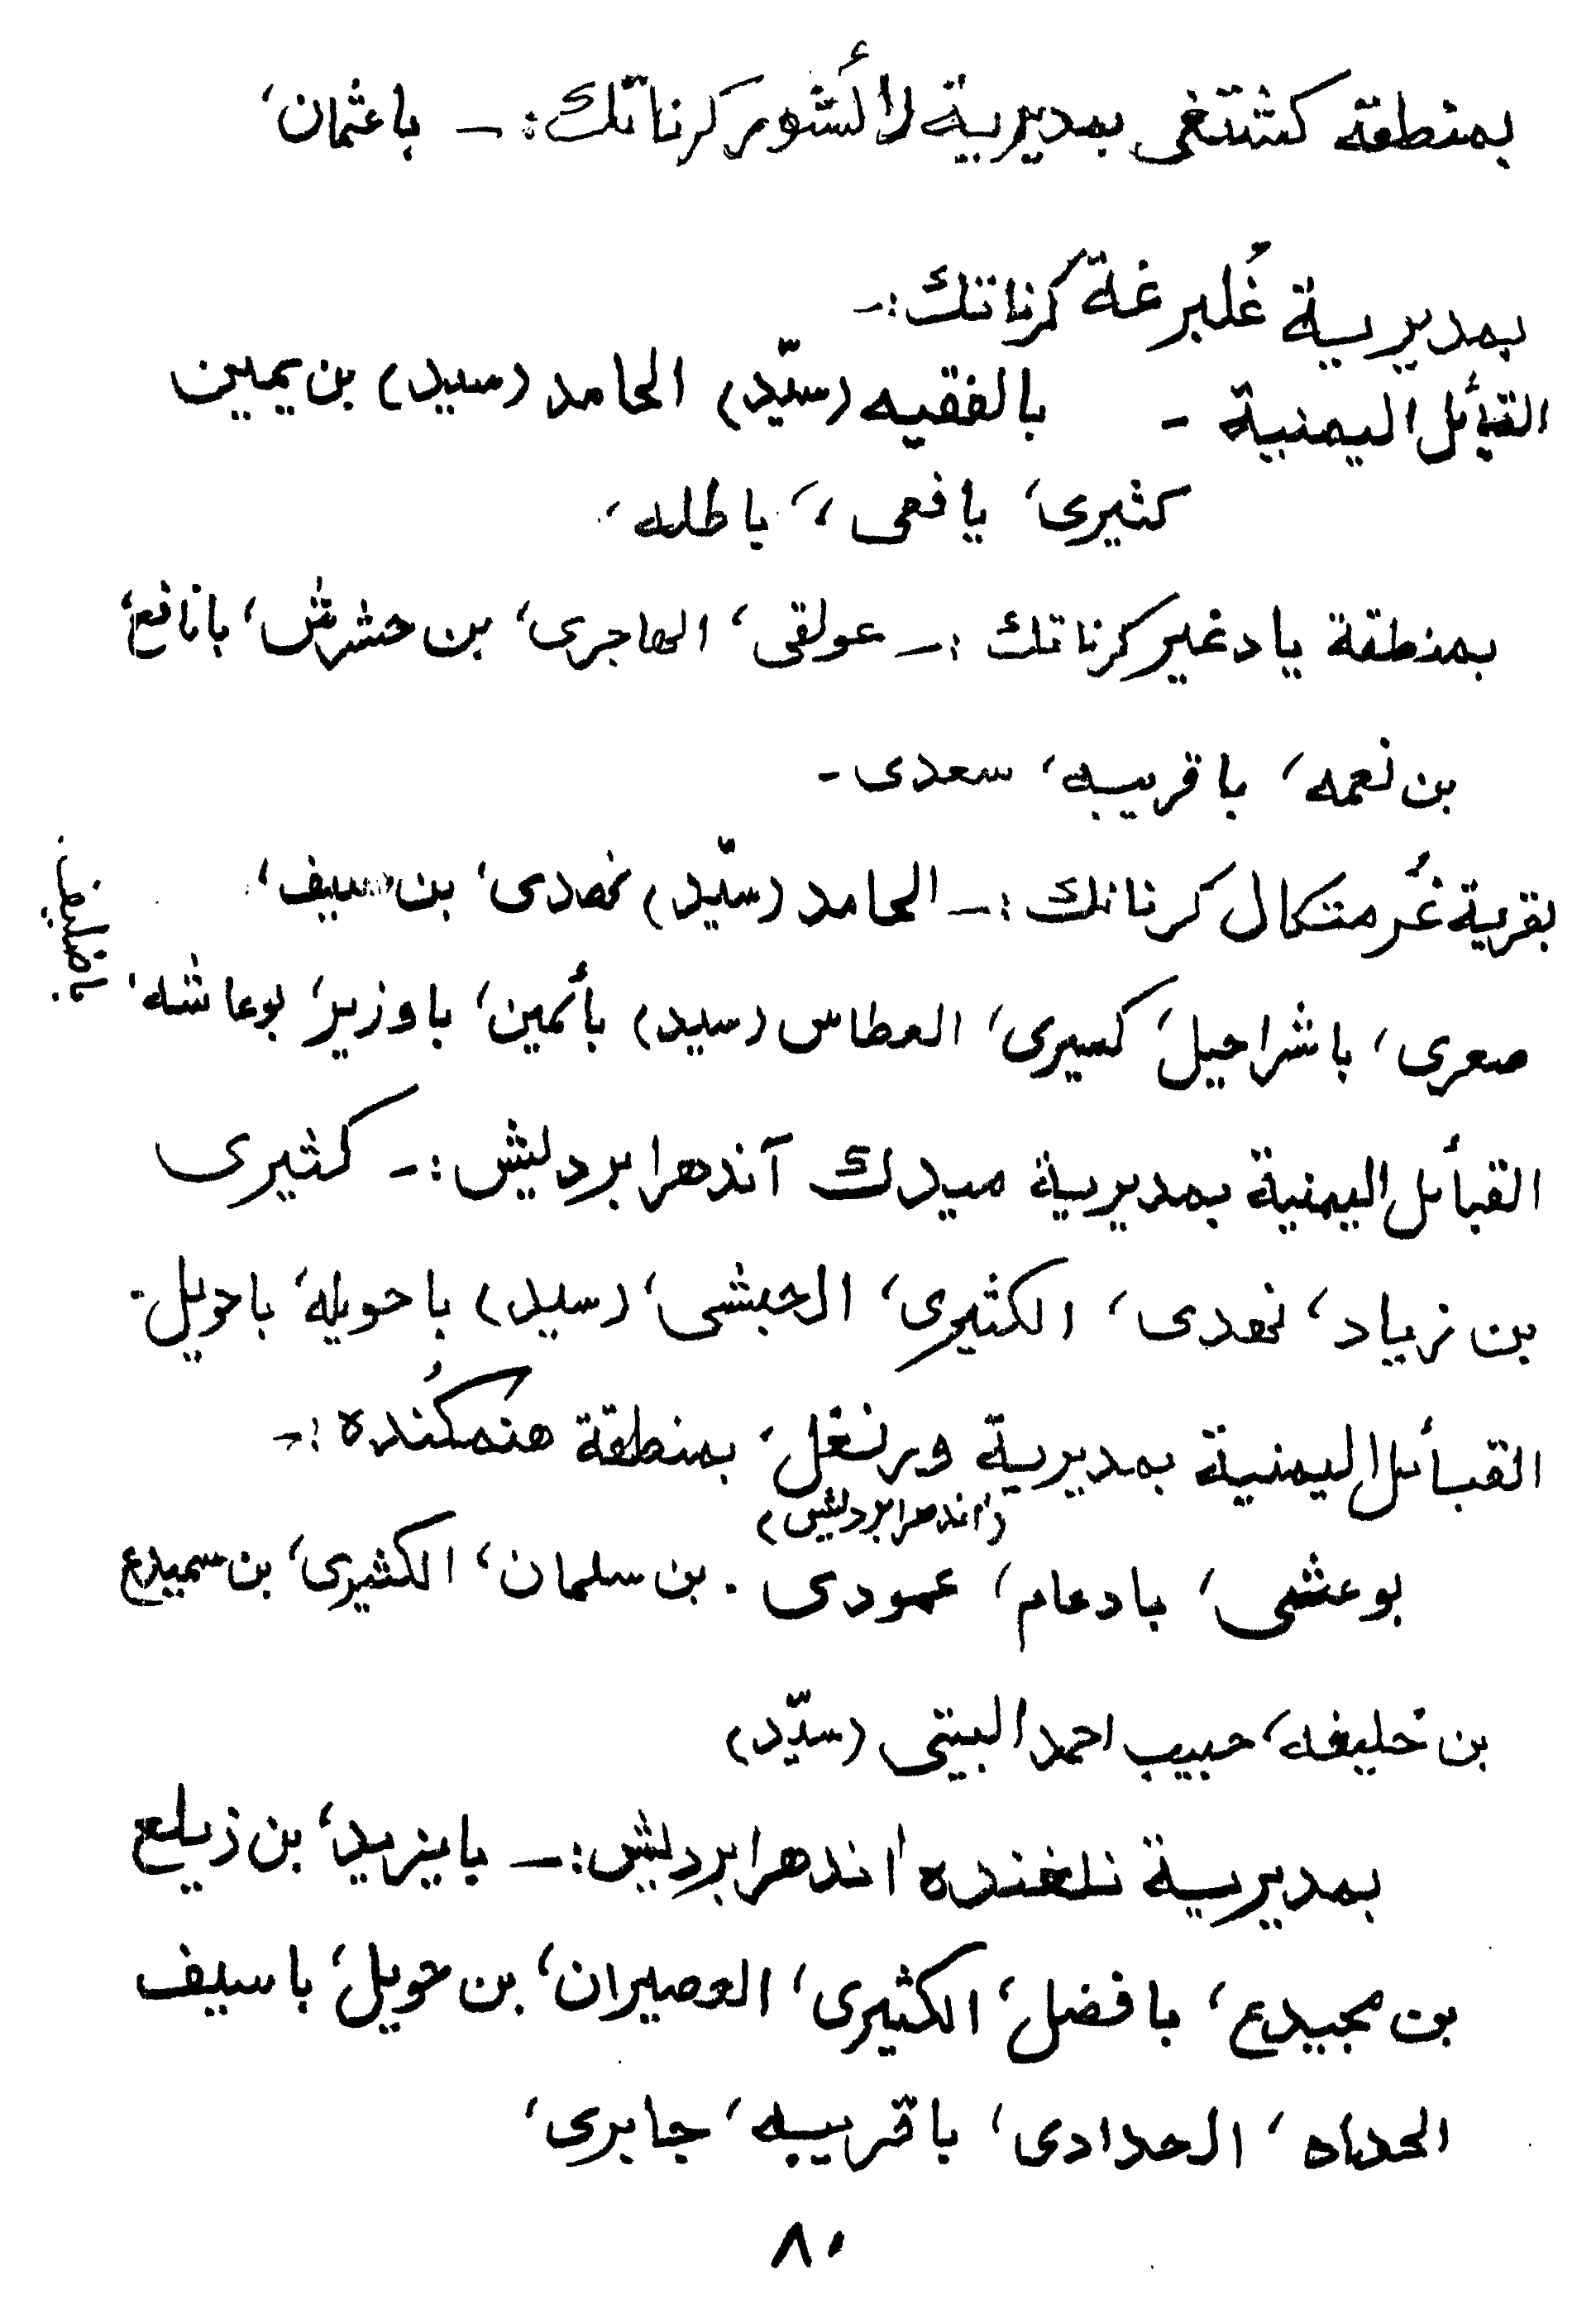 بمنطقة كشتغى بمديرية رائشور كرناتك :ـ باعثمان،
بمديرية غُلبرغة كرناتك :ـ
القبأىل اليمنية - بالفقيه (سيّد) الحامد (سيد) بن يمين
كثيرى، يافعى،، باطله،
بمنطقة يادغير كرناتك :ـ عولقى، الهاجرى، بن حشرش، بانافع،
بن نعمه، باقريبه، سعدى -
بقرية غُرمتكال كرناتك :ـ الحامد (سيّد) نهدى، بن سيف،
صعرى، باشراحيل، كسيرى، العطاس (سيد) بأمين، باوزير، بوعاشه،
القبأىل اليمنية بمديرية ميدك آندهرا برديش :ـ كثيرى
بن زياد، نهدى، الكثيرى، الحبشى، (سيد) باحويله، باحويل.
القبأىل اليمنية بمديرية ورنغل، بمنطقة هنمكُنده :ـ
(اندهرا برديش)
بوعشى، بادعام، عمودى . بن سلمان، الكثيرى، بن سميدع
بن خليفه، حبيب احمد البيتى (سيّد)
بمديرية نلغنده اندهرا برديش :ـ بايزيد، بن زيلع
بن مجيدع، بافضل، الكثيرى، العصيران، بن حويل، باسيف
الحداه، الحدادى، باقريبه، جابرى،
٨٠